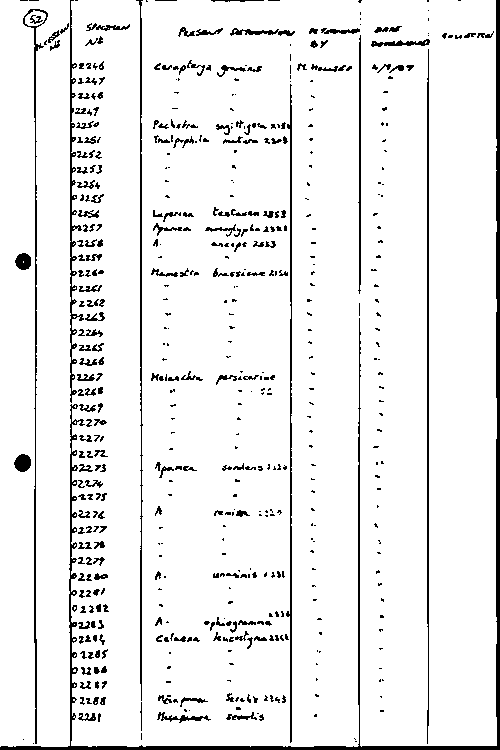 52
ACCESSION No SPECIMEN No PRESENT DETERMINATION DETERMINED BY DATE DETERMINED COLLECTION
02246 Cerapteryx graminis M. Hounsef 4/9/87
02247 " " " "
02248 " " " "
02249 " " " "
02250 Pachetra sagittigera " "
02251 Thalpophila matura 2303 " "
02252 " " " "
02253 " " " "
02254 " " " "
02255 " " " "
02256 Luperina testacea 2353 " "
02257 Apamea monoglypha 2321 " "
02258 A. anceps 2333 " "
02259 " " " "
02260 Mamestra brassicae 2154 " "
02261 " " " "
02262 " " " "
02263 " " " "
02264 " " " "
02265 " " " "
02266 " " " "
02267 Melanchra persicariae " "
02268 " " " "
02269 " " " "
02270 " " " "
02271 " " " "
02272 " " " "
02273 Apamea sordens " "
02274 " " " "
02275 " " " "
02276 A. remissa " "
02277 " " " "
02278 " " " "
02279 " " " "
02280 A. unanimis 2331 " "
02281 " " " "
02282 " " " "
02283 A. ophiogramma " "
02284 Celaena leucostigma " "
02285 " " " "
02286 " " " "
02287 " " " "
02288 Mesapamea secalis 2343 " "
02289 Mesapamea secalis " "